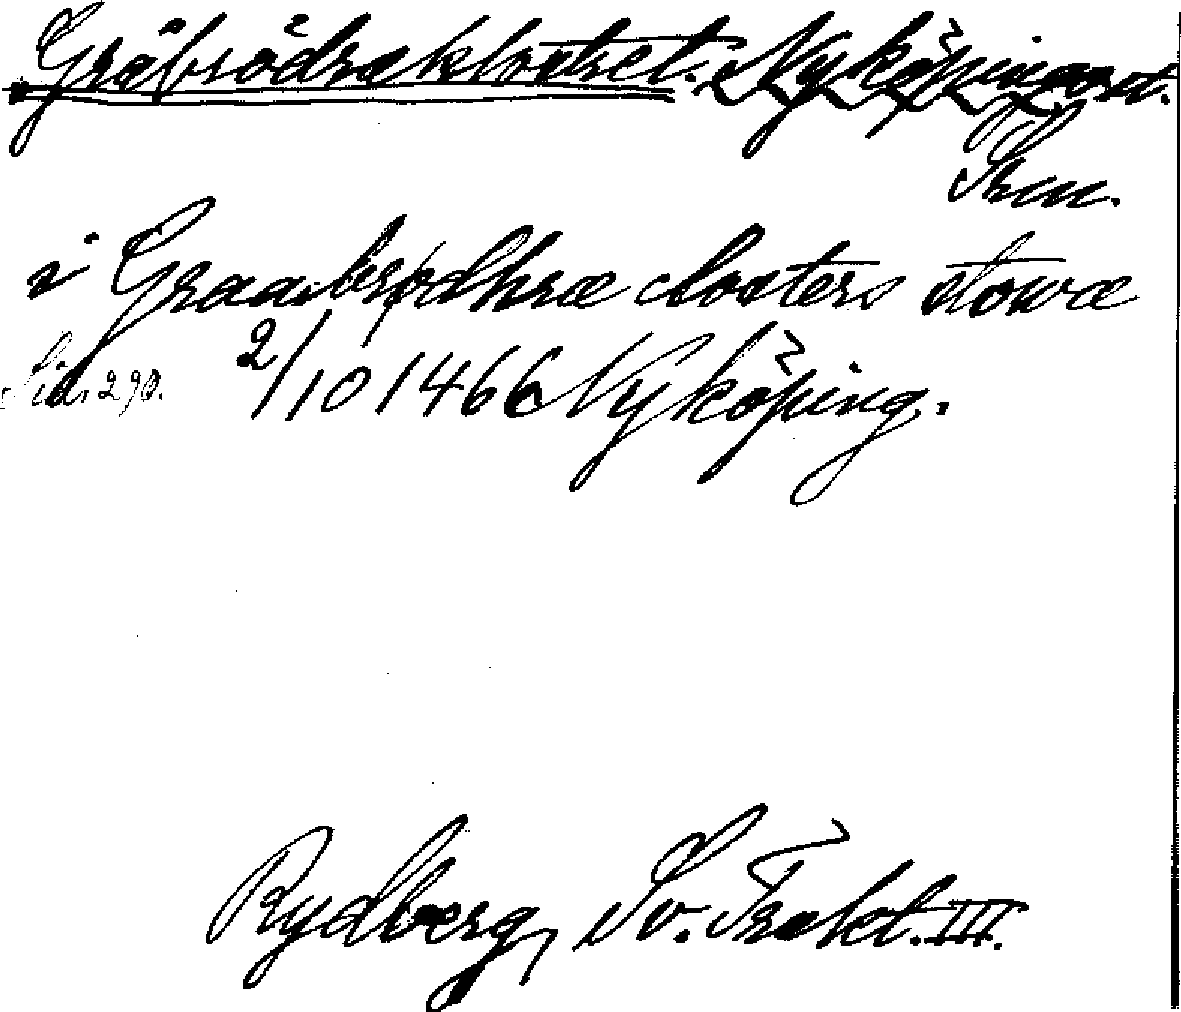 Gråbrödraklostret. Nyköpings st.
Srm.
i Graabrødhræ closters stowæ
Sid. 290. 2/10 1466 Nyköping.
Rydberg, Sv. Trakt. III.